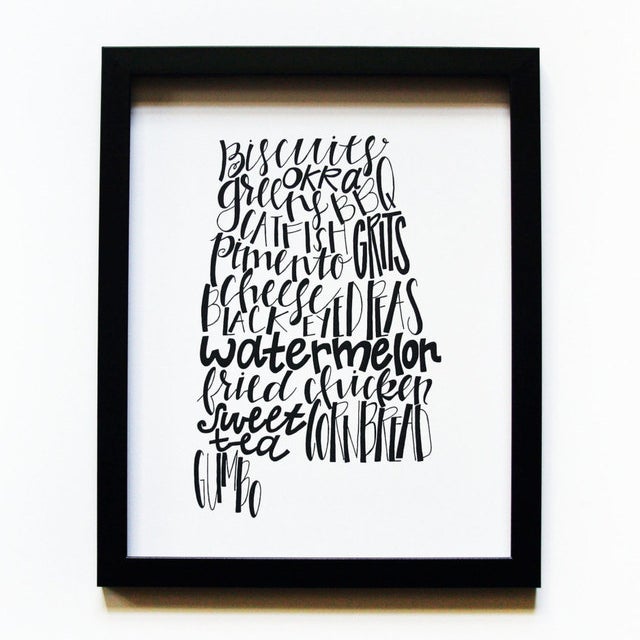 Biscuits
OKRa
greens BBQ
CATFISH
Pimento GRITS
cheese
BLACK EYED PEAS
watermelon
fried chicken
sweet CORNBREAD
tea
GUMBO